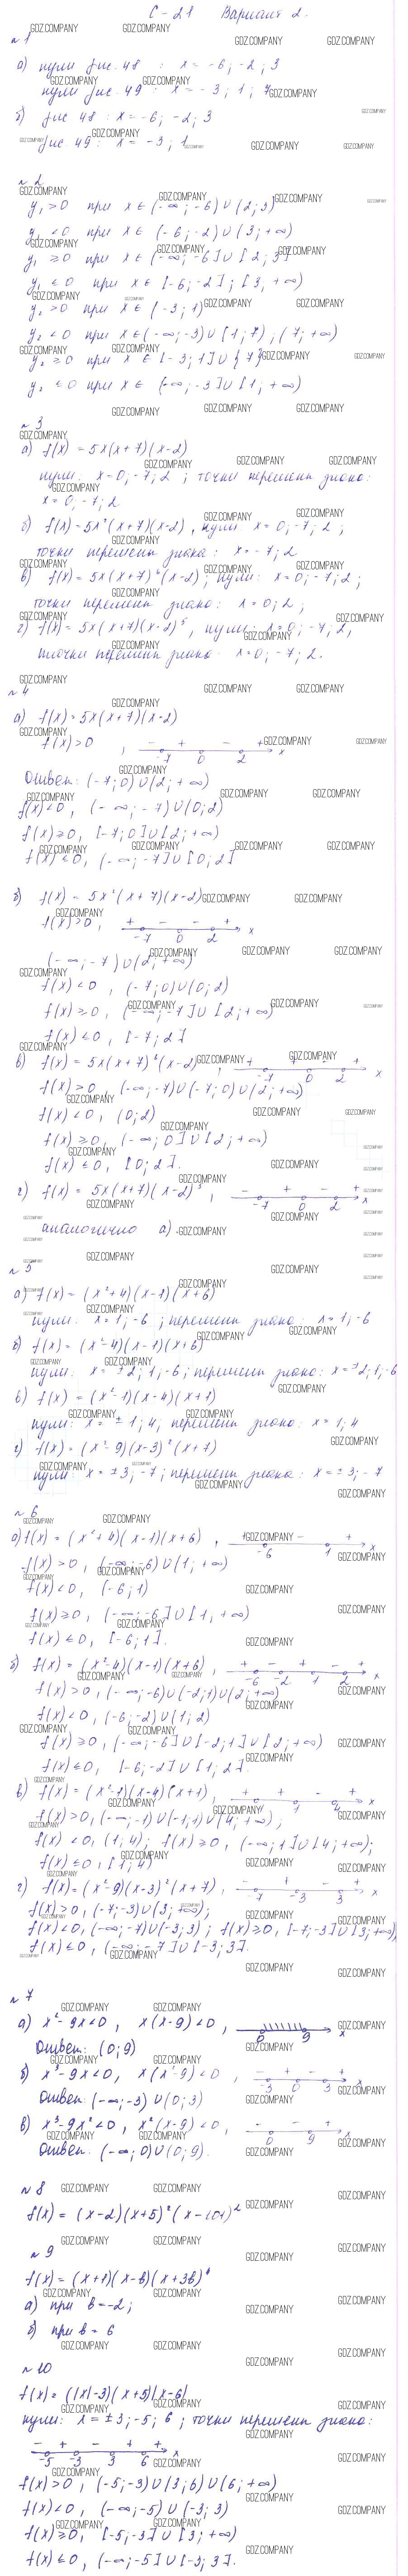 С-21 Вариант 2.
№1
а) нули рис. 48 : x = -6; -2; 3
нули рис. 49 : x = -3; 1; 7
б) рис 48 : x = -6, -2; 3
рис. 49 : x = -3; 1
№2
y₁ > 0 при x ∈ (-∞; -6) ∪ (2; 3)
y₁ < 0 при x ∈ (-6; -2) ∪ (3; +∞)
y₁ ≥ 0 при x ∈ (-∞; -6] ∪ [2; 3]
y₁ ≤ 0 при x ∈ [-6; -2] ; [3; +∞)
y₂ > 0 при x ∈ (-3; 1)
y₂ < 0 при x ∈ (-∞; -3) ∪ (1; 7) ; (7; +∞)
y₂ ≥ 0 при x ∈ [-3; 1] ∪ {7}
y₂ ≤ 0 при x ∈ (-∞; -3] ∪ [1; +∞)
№3
а) f(x) = 5x(x+7)(x-2)
нули: x=0; -7; 2 ; точки перемены знака:
x=0; -7; 2
б) f(x) = 5x²(x+7)(x-2), нули x=0; -7; 2 ;
точки перемены знака: x=-7; 2
в) f(x) = 5x(x+7)²(x-2); нули: x=0; -7; 2 ;
точки перемены знака: x=0; 2 ;
г) f(x) = 5x(x+7)(x-2)³, нули: x=0; -7; 2,
точки перемены знака: x=0; -7; 2.
№4
а) f(x) = 5x(x+7)(x-2)
f(x) > 0 , - + - + -7 0 2 x
Ответ: (-7; 0) ∪ (2; +∞)
f(x) < 0, (-∞; -7) ∪ (0; 2)
f(x) ≥ 0, [-7; 0] ∪ [2; +∞)
f(x) ≤ 0, (-∞; -7] ∪ [0; 2]
б) f(x) = 5x²(x+7)(x-2)
f(x) > 0, + - - + -7 0 2 x
(-∞; -7) ∪ (2; +∞)
f(x) < 0, (-7; 0) ∪ (0; 2)
f(x) ≥ 0, (-∞; -7] ∪ [2; +∞)
f(x) ≤ 0, [-7; 2]
в) f(x) = 5x(x+7)²(x-2) , + + - + -7 0 2 x
f(x) > 0, (-∞; -7) ∪ (-7; 0) ∪ (2; +∞)
f(x) < 0, (0; 2)
f(x) ≥ 0, (-∞; 0] ∪ [2; +∞)
f(x) ≤ 0, [0; 2].
г) f(x) = 5x(x+7)(x-2)³ , - + - + -7 0 2 x
аналогично а).
№5
а) f(x) = (x²+4)(x-1)(x+6)
нули: x=1; -6 ; перемены знака: x=1; -6
б) f(x) = (x²-4)(x-1)(x+6)
нули: x=±2; 1; -6; перемены знака: x=±2; 1; -6
в) f(x) = (x²-1)(x-4)(x+1)
нули: x=±1; 4; перемены знака: x=1; 4
г) f(x) = (x²-9)(x-3)²(x+7)
нули x=±3; -7; перемены знака: x=±3; -7
№6
а) f(x) = (x²+4)(x-1)(x+6) , + - + -6 1 x
f(x) > 0, (-∞; -6) ∪ (1; +∞)
f(x) < 0, (-6; 1)
f(x) ≥ 0, (-∞; -6] ∪ [1; +∞)
f(x) ≤ 0, [-6; 1].
б) f(x) = (x²-4)(x-1)(x+6), + - + - + -6 -2 1 2 x
f(x) > 0, (-∞; -6) ∪ (-2; 1) ∪ (2; +∞)
f(x) < 0, (-6; -2) ∪ (1; 2)
f(x) ≥ 0, (-∞; -6] ∪ [-2; 1] ∪ [2; +∞)
f(x) ≤ 0, [-6; -2] ∪ [1; 2].
в) f(x) = (x²-1)(x-4)(x+1), + + - + -1 1 4 x
f(x) > 0, (-∞; -1) ∪ (-1; 1) ∪ (4; +∞);
f(x) < 0, (1; 4); f(x) ≥ 0, (-∞; 1] ∪ [4; +∞);
f(x) ≤ 0, [1; 4)
г) f(x) = (x²-9)(x-3)²(x+7), - + - + -7 -3 3 x
f(x) > 0, (-7; -3) ∪ (3; +∞);
f(x) < 0, (-∞; -7) ∪ (-3; 3); f(x) ≥ 0, [-7; -3] ∪ [3; +∞),
f(x) ≤ 0, (-∞; -7] ∪ [-3; 3].
№7
а) x²-9x < 0, x(x-9) < 0, 0 9 x
Ответ: (0; 9)
б) x³-9x < 0, x(x²-9) < 0 , - + - + -3 0 3 x
Ответ: (-∞; -3) ∪ (0; 3)
в) x³-9x² < 0, x²(x-9) < 0, - - + 0 9 x
Ответ: (-∞; 0) ∪ (0; 9).
№8
f(x) = (x-2)(x+5)²(x-101)²
№9
f(x) = (x+1)(x-b)(x+3b)
а) при b=-2;
б) при b=6
№10
f(x) = (|x|-3)(x+5)|x-6|
нули: x=±3; -5; 6 ; точки перемены знака:
- + - + + -5 -3 3 6 x
f(x) > 0, (-5; -3) ∪ (3; 6) ∪ (6; +∞)
f(x) < 0, (-∞; -5) ∪ (-3; 3)
f(x) ≥ 0, [-5; -3] ∪ [3; +∞)
f(x) ≤ 0, (-∞; -5] ∪ [-3; 3].